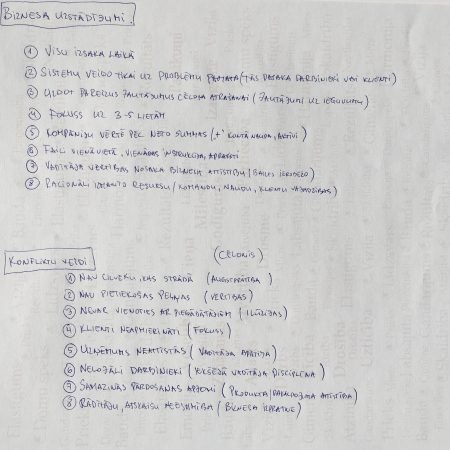 BIZNESA UZSTĀDĪJUMI.
① VISU IZSAKA LAIKĀ
② SISTĒMU VEIDO TIKAI UZ PROBLĒMU PAMATA (TĀS PASAKA DARBINIEKI VAI KLIENTI)
③ UZDOT PAREIZUS JAUTĀJUMUS CĒLOŅA ATRAŠANAI (JAUTĀJUMI UZ IEGUVUMU)
④ FOKUSS UZ 3-5 LIETĀM
⑤ KOMPĀNIJU VĒRTĒ PĒC NETO SUMMAS ("+" KONTĀ NAUDA, AKTĪVI)
⑥ FAILI VIENĀ VIETĀ, VIENĀDAS INSTRUKCIJAS, APRAKSTI
⑦ VADĪTĀJA VĒRTĪBAS NOSAKA BIZNESA ATTĪSTĪBU
⑧ RACIONĀLI IZMANTO RESURSU (KOMANDU, NAUDU, KLIENTU VAJADZĪBAS)
KONFLIKTU VEIDI (CĒLONIS)
① NAV CILVĒKU, KAS STRĀDĀ (AUGSTPRĀTĪBA)
② NAV PIETIEKOŠAS PEĻŅAS (VĒRTĪBAS)
③ NEVAR VIENOTIES AR PIEGĀDĀTĀJIEM (ILŪZIJAS)
④ KLIENTI NEAPMIERINĀTI (FOKUSS)
⑤ UZŅĒMUMS NEATTĪSTĀS (VADĪTĀJA APĀTIJA)
⑥ NELOJĀLI DARBINIEKI (IEKŠĒJĀ VADĪTĀJA DISCIPLĪNA)
⑦ SAMAZINĀS PĀRDOŠANAS APJOMI (PRODUKTA/PAKALPOJUMA ATTĪSTĪBA)
⑧ RĀDĪTĀJU, ATSKAIŠU NEESAMĪBA (BIZNESA IZPRATNE)